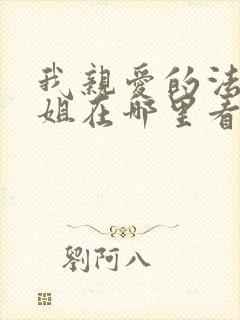 我親愛的法
姐在哪里看
劉阿八